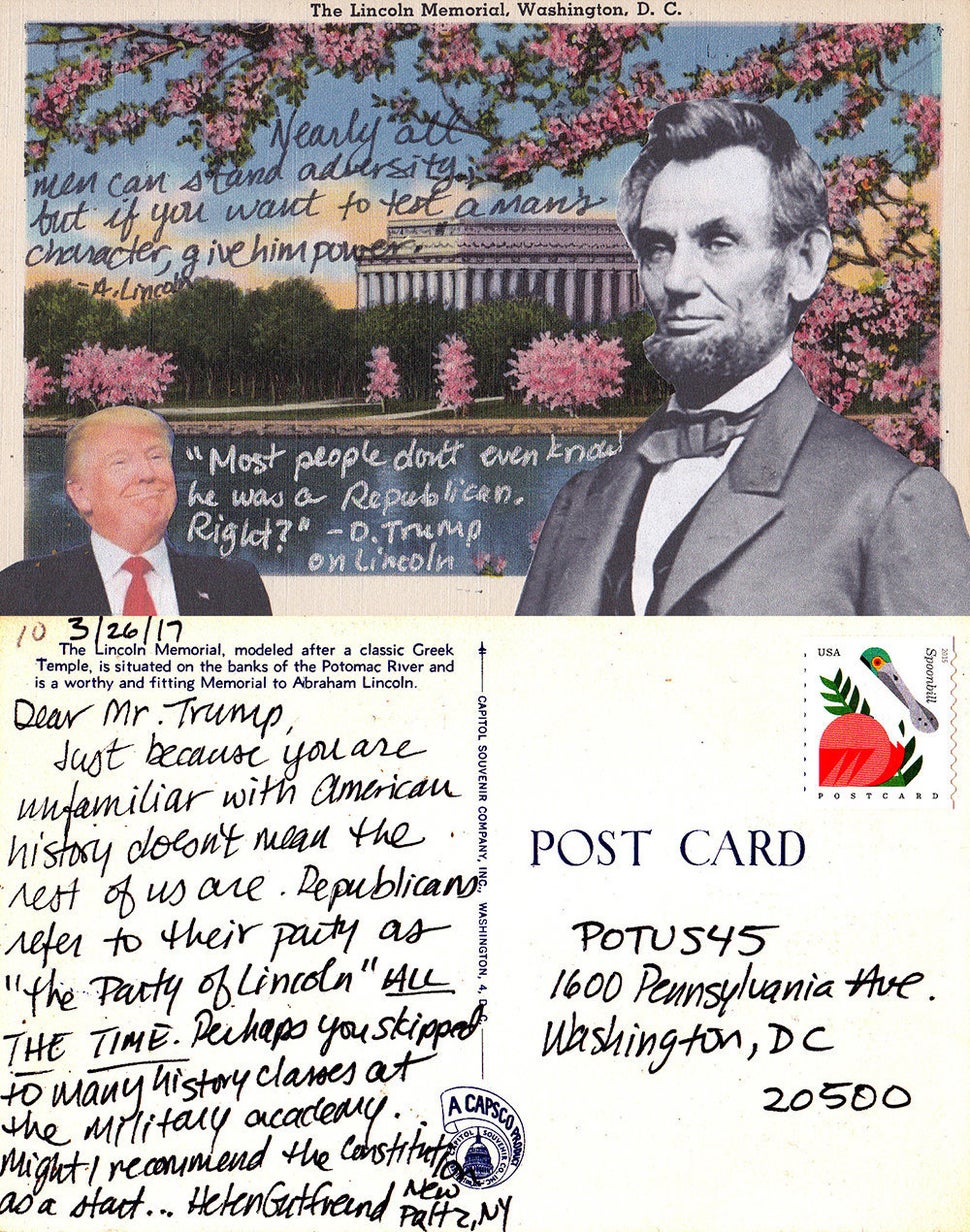 The Lincoln Memorial, Washington, D. C.
Nearly all
men can stand adversity,
but if you want to test a man's
character, give him power.
-A. Lincoln
"Most people don't even know
he was a Republican.
Right?" -D. Trump
on Lincoln
10 3/26/17
The Lincoln Memorial, modeled after a classic Greek
Temple, is situated on the banks of the Potomac River and
is a worthy and fitting Memorial to Abraham Lincoln.
Dear Mr. Trump,
Just because you are
unfamiliar with American
history doesn't mean the
rest of us are. Republicans
refer to their party as
"the Party of Lincoln" ALL
THE TIME. Perhaps you skipped
to many history classes at
the military academy.
Might I recommend the Constitution
as a start... Helen Gutfreund New
Paltz, NY
CAPITOL SOUVENIR COMPANY, INC., WASHINGTON, 4, D.C.
A CAPSCO PRODUCT
CAPITOL SOUVENIR CO., INC.
USA
2015
Spoonbill
POSTCARD
POST CARD
POTUS45
1600 Pennsylvania Ave.
Washington, DC
20500